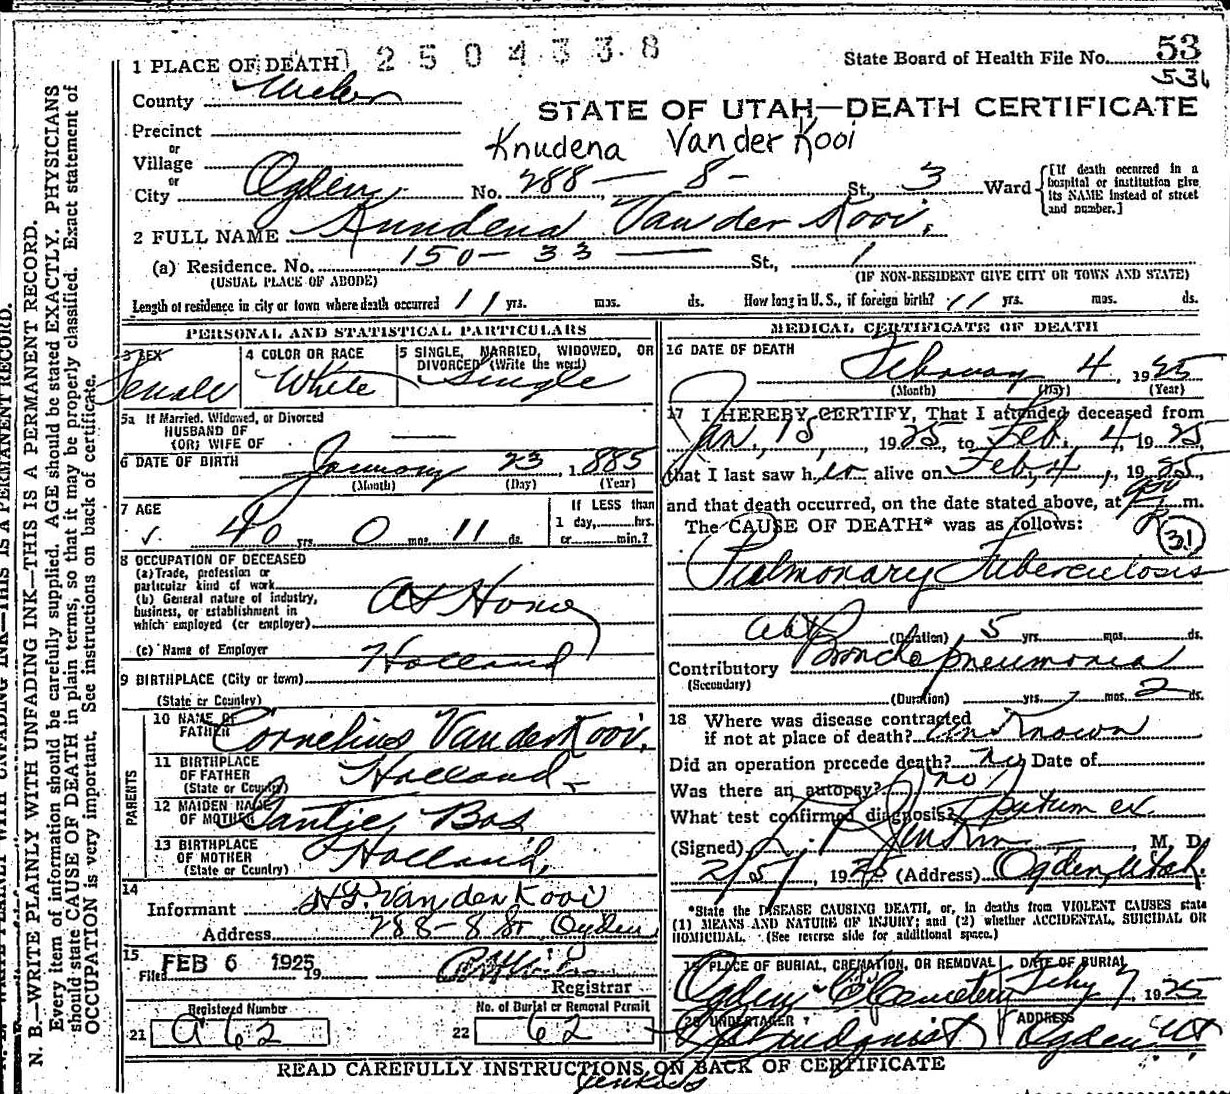 1 PLACE OF DEATH 2 5 0 4 3 3 8
State Board of Health File No. 53
531
County Weber
STATE OF UTAH—DEATH CERTIFICATE
Precinct
or
Knudena Van der Kooi
Village
or
City Ogden No. 288 — 8 - St., 3 Ward
[If death occurred in a
hospital or institution give
its NAME instead of street
and number.]
2 FULL NAME Knudena Van der Kooi.
(a) Residence. No. 150 - 33 — St., 1
(USUAL PLACE OF ABODE) (IF NON-RESIDENT GIVE CITY OR TOWN AND STATE)
Length of residence in city or town where death occurred 11 yrs. mos. ds. How long in U. S., if foreign birth? 11 yrs. mos. ds.
PERSONAL AND STATISTICAL PARTICULARS
3 SEX
Female
4 COLOR OR RACE
White
5 SINGLE, MARRIED, WIDOWED, OR
DIVORCED (Write the word)
Single
5a If Married, Widowed, or Divorced
HUSBAND OF
(OR) WIFE OF —
6 DATE OF BIRTH January 23 1885
(Month) (Day) (Year)
7 AGE
40 yrs. 0 mos. 11 ds.
If LESS than
1 day, hrs.
or min.?
8 OCCUPATION OF DECEASED
(a) Trade, profession or
particular kind of work
(b) General nature of industry,
business, or establishment in
which employed (or employer)
At Home
(c) Name of Employer
Holland
9 BIRTHPLACE (City or town)
(State or Country)
PARENTS
10 NAME OF
FATHER Cornelius Van der Kooi.
11 BIRTHPLACE
OF FATHER
(State or Country) Holland -
12 MAIDEN NAME
OF MOTHER Bos
13 BIRTHPLACE
OF MOTHER
(State or Country) Holland,
14
Informant Van der Kooi
Address 288 - 8 St Ogden
15
Filed FEB 6 1925 19
Registrar
Registered Number
21 a 62
No. of Burial or Removal Permit
22 62
MEDICAL CERTIFICATE OF DEATH
16 DATE OF DEATH
February 4, 1925
(Month) (Day) (Year)
17 I HEREBY CERTIFY, That I attended deceased from
Jan, 15 1925, to Feb. 4, 1925,
that I last saw her alive on Feb, 4, 1925,
and that death occurred, on the date stated above, at m.
The CAUSE OF DEATH* was as follows:
31
Pulmonary Tuberculosis
abt (Duration) 5 yrs. mos. ds.
Contributory Broncho pneumonia
(Secondary)
(Duration) yrs. mos. 2 ds.
18 Where was disease contracted
if not at place of death? Unknown
Did an operation precede death? no Date of
Was there an autopsy? no
What test confirmed diagnosis? Sputum ex.
(Signed) M. D.
2/5/, 1925 (Address) Ogden, Utah.
*State the DISEASE CAUSING DEATH, or, in deaths from VIOLENT CAUSES state
(1) MEANS AND NATURE OF INJURY; and (2) whether ACCIDENTAL, SUICIDAL OR
HOMICIDAL. (See reverse side for additional space.)
19 PLACE OF BURIAL, CREMATION, OR REMOVAL
Ogden Cemetery
DATE OF BURIAL
Feby 7, 1925
20 UNDERTAKER
Lindquist
ADDRESS
Ogden Ut
READ CAREFULLY INSTRUCTIONS ON BACK OF CERTIFICATE
Jenkins
N. B.—WRITE PLAINLY WITH UNFADING INK—THIS IS A PERMANENT RECORD.
Every item of information should be carefully supplied. AGE should be stated EXACTLY. PHYSICIANS
should state CAUSE OF DEATH in plain terms, so that it may be properly classified. Exact statement of
OCCUPATION is very important. See instructions on back of certificate.